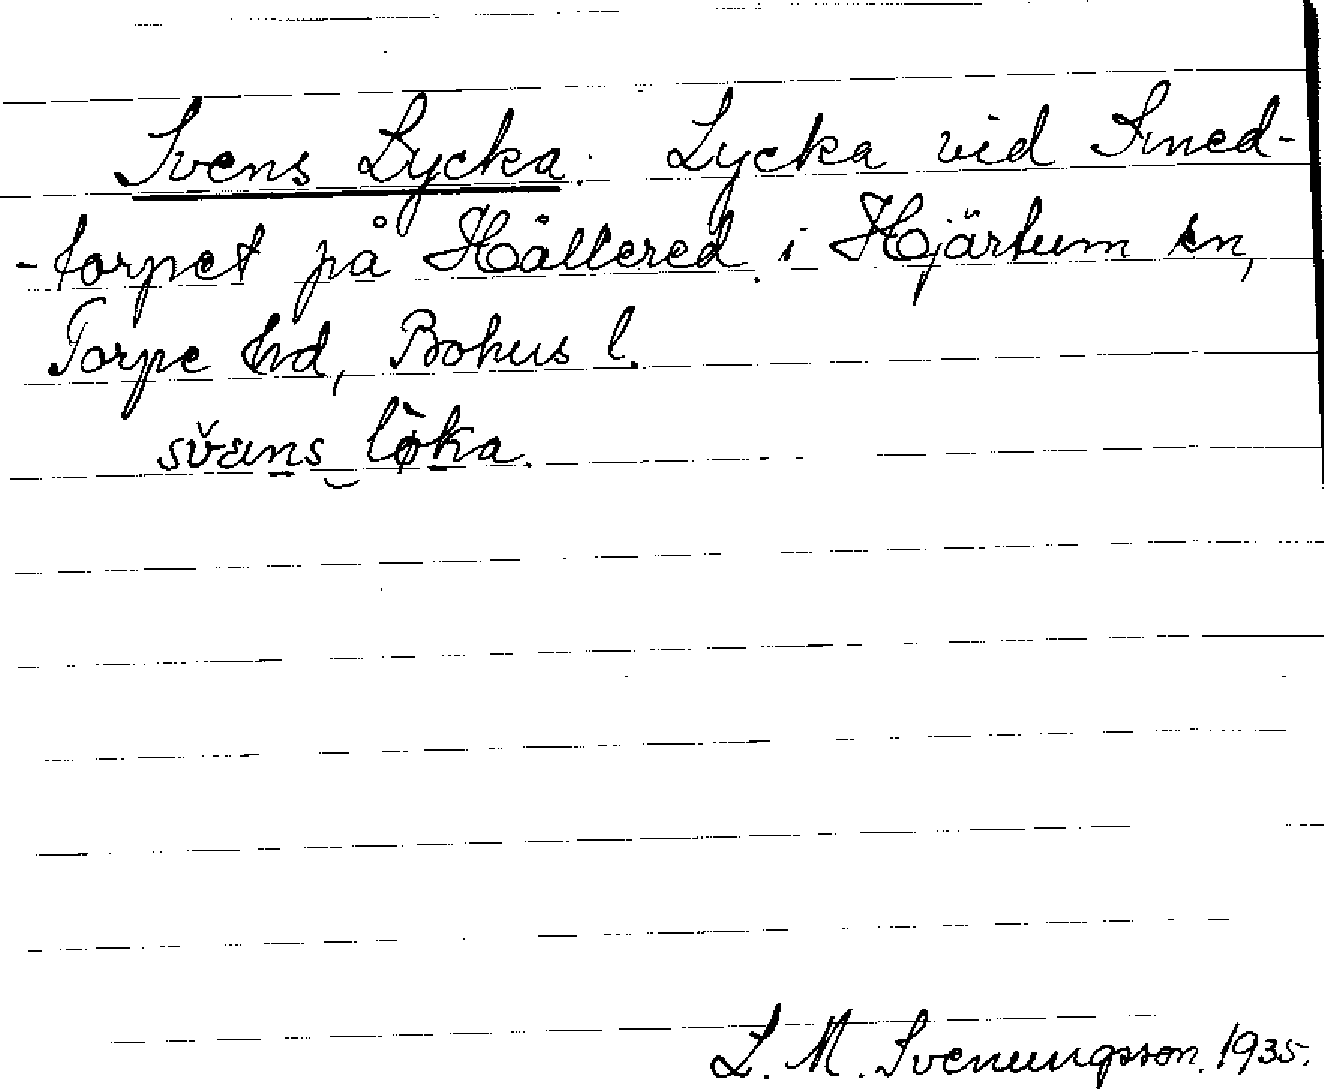 Svens Lycka. Lycka vid Smed-
-torpet på Hällered i Hjärtum sn,
Torpe hd, Bohus l.
L. M. Svenungsson. 1935.